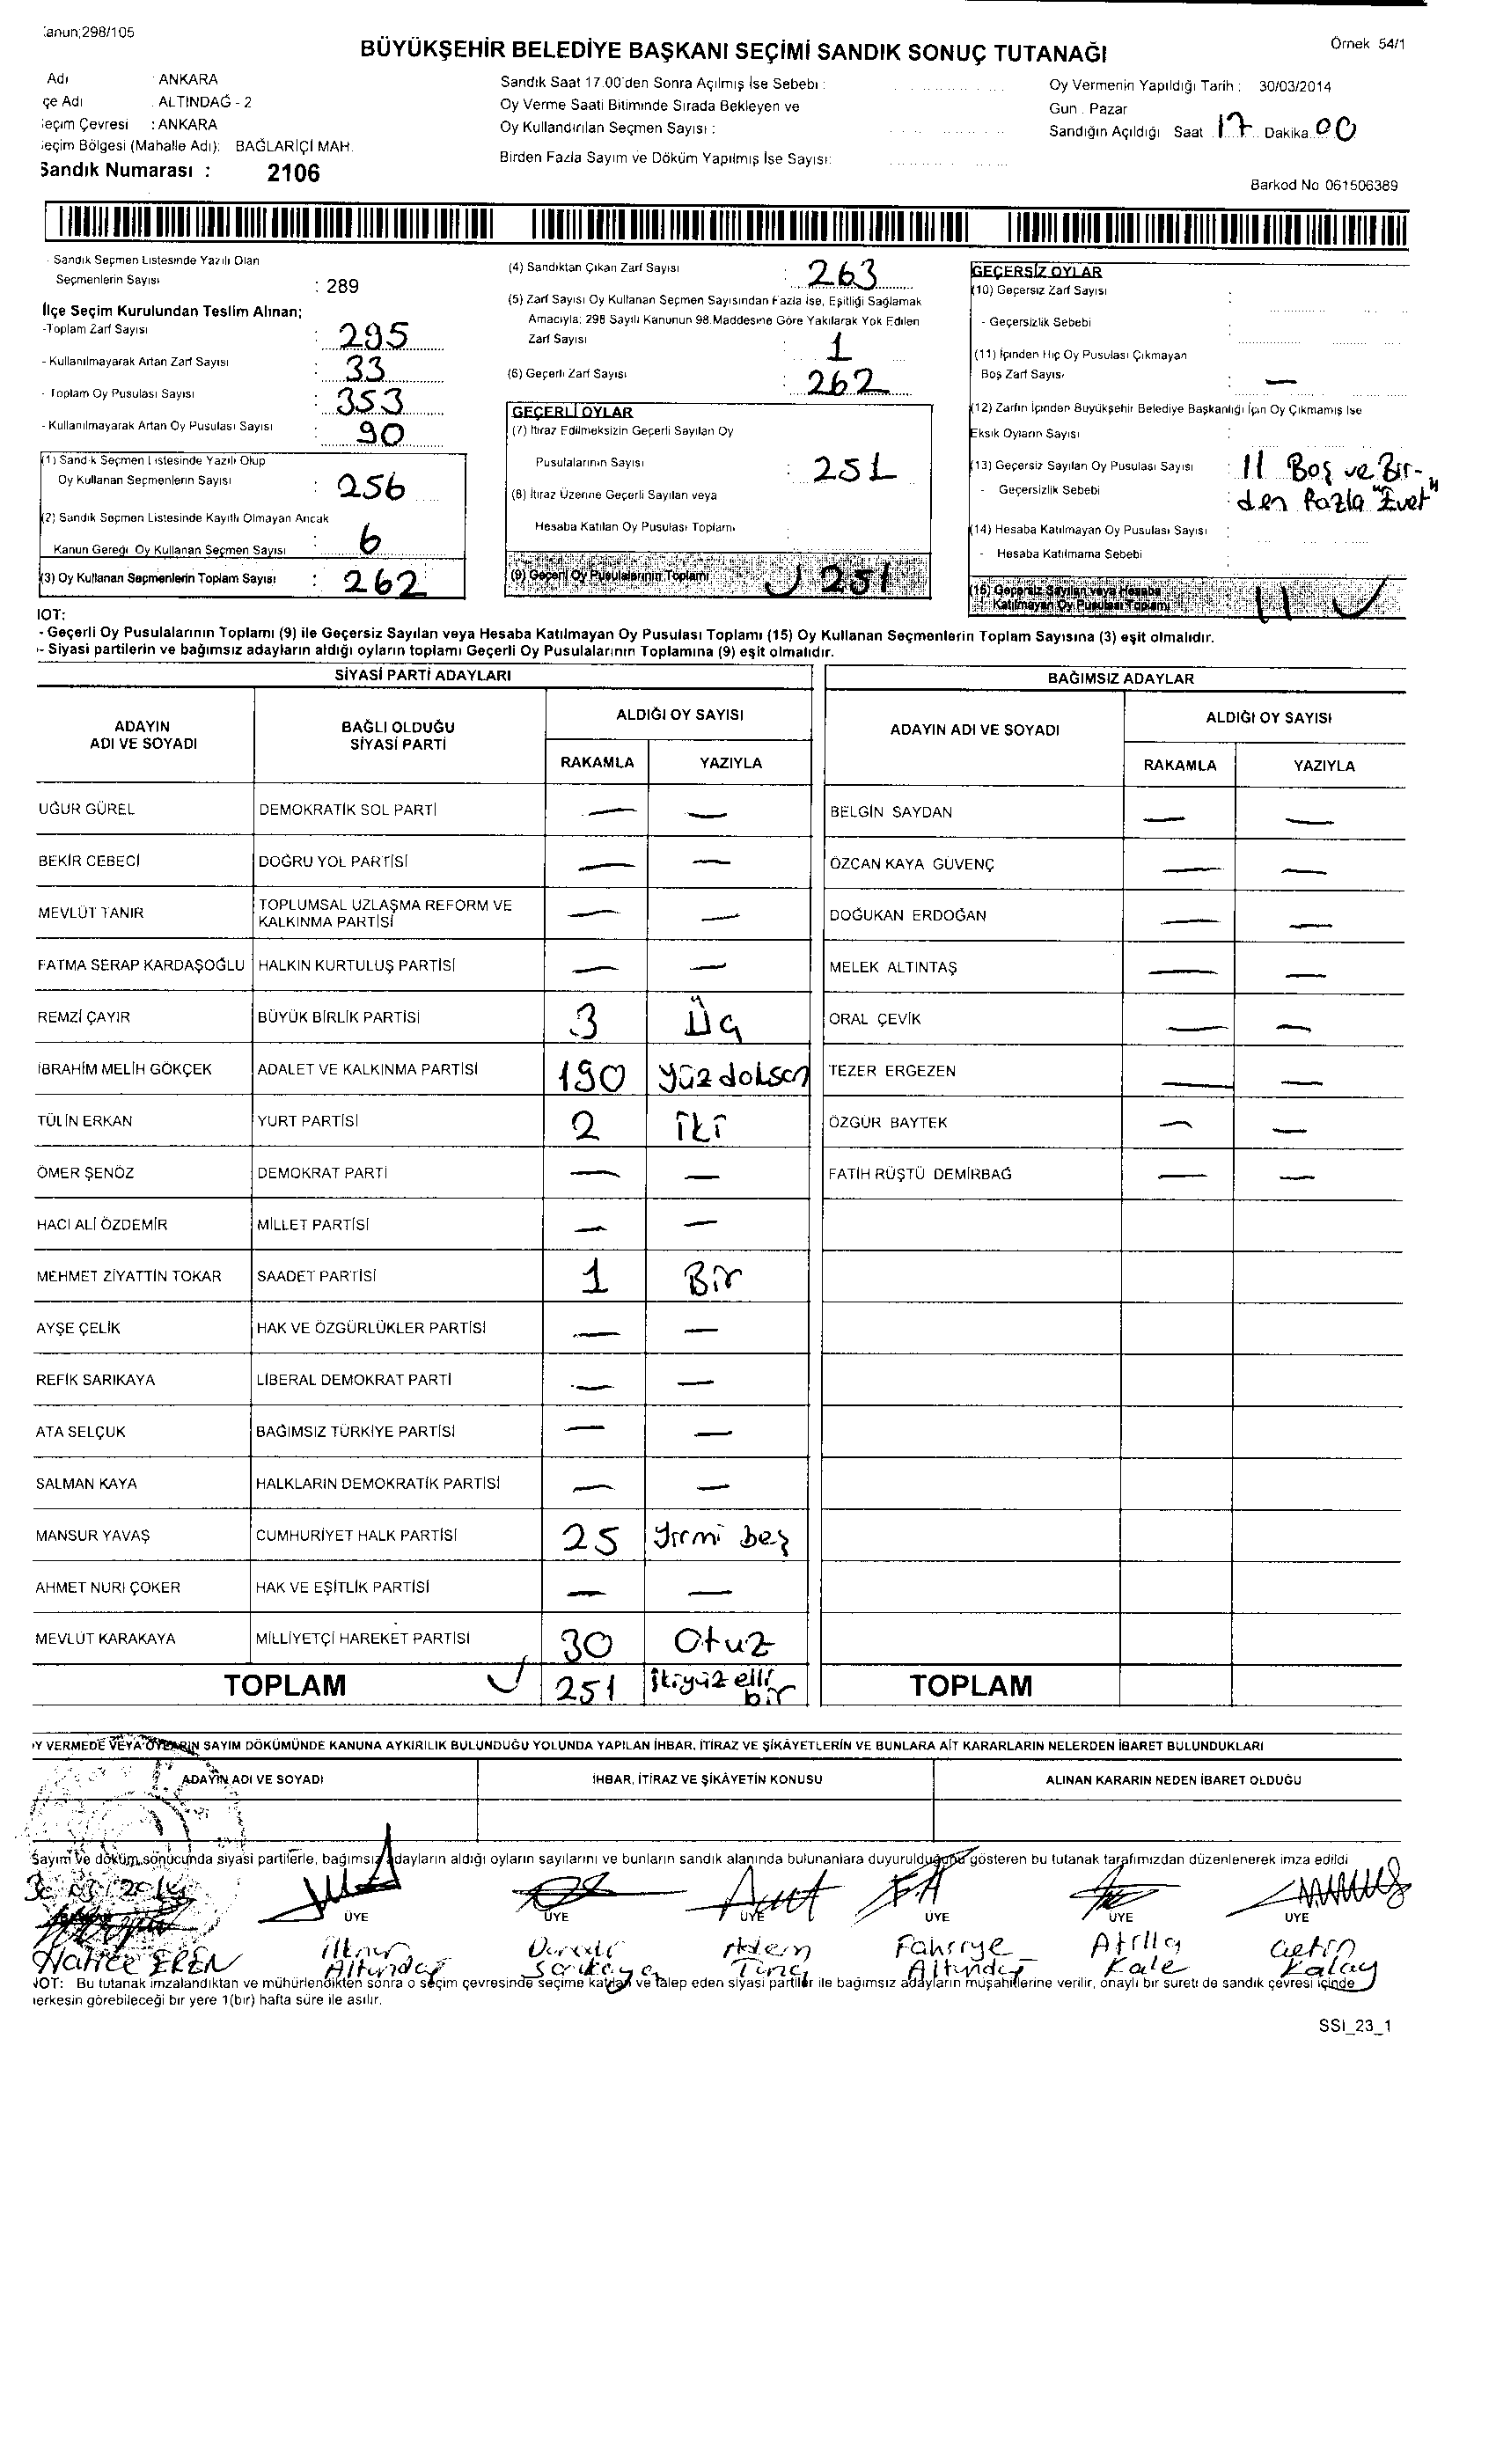 Kanun;298/105
BÜYÜKŞEHİR BELEDİYE BAŞKANI SEÇİMİ SANDIK SONUÇ TUTANAĞI
Örnek 54/1
Adı : ANKARA
çe Adı : ALTINDAĞ - 2
eçim Çevresi : ANKARA
eçim Bölgesi (Mahalle Adı): BAĞLARİÇİ MAH.
Sandık Numarası : 2106
Sandık Saat 17.00'den Sonra Açılmış İse Sebebi :
Oy Verme Saati Bitiminde Sırada Bekleyen ve
Oy Kullandırılan Seçmen Sayısı :
Birden Fazla Sayım ve Döküm Yapılmış İse Sayısı:
Oy Vermenin Yapıldığı Tarih : 30/03/2014
Gün : Pazar
Sandığın Açıldığı Saat 17 Dakika 00
Barkod No 061506389
- Sandık Seçmen Listesinde Yazılı Olan
Seçmenlerin Sayısı : 289
İlçe Seçim Kurulundan Teslim Alınan;
-Toplam Zarf Sayısı : 295
- Kullanılmayarak Artan Zarf Sayısı : 33
- Toplam Oy Pusulası Sayısı : 353
- Kullanılmayarak Artan Oy Pusulası Sayısı : 90
(1) Sandık Seçmen Listesinde Yazılı Olup
Oy Kullanan Seçmenlerin Sayısı : 256
(2) Sandık Seçmen Listesinde Kayıtlı Olmayan Ancak
Kanun Gereği Oy Kullanan Seçmen Sayısı : 6
(3) Oy Kullanan Seçmenlerin Toplam Sayısı : 262
(4) Sandıktan Çıkan Zarf Sayısı : 263
(5) Zarf Sayısı Oy Kullanan Seçmen Sayısından Fazla ise, Eşitliği Sağlamak
Amacıyla; 298 Sayılı Kanunun 98.Maddesine Göre Yakılarak Yok Edilen
Zarf Sayısı : 1
(6) Geçerli Zarf Sayısı : 262
GEÇERLİ OYLAR
(7) İtiraz Edilmeksizin Geçerli Sayılan Oy
Pusulalarının Sayısı : 251
(8) İtiraz Üzerine Geçerli Sayılan veya
Hesaba Katılan Oy Pusulası Toplamı :
(9) Geçerli Oy Pusulalarının Toplamı 251
GEÇERSİZ OYLAR
(10) Geçersiz Zarf Sayısı :
- Geçersizlik Sebebi :
(11) İçinden Hiç Oy Pusulası Çıkmayan
Boş Zarf Sayısı : —
(12) Zarfın İçinden Büyükşehir Belediye Başkanlığı İçin Oy Çıkmamış İse
Eksik Oyların Sayısı :
(13) Geçersiz Sayılan Oy Pusulası Sayısı : 11 Boş ve Bir-
- Geçersizlik Sebebi : den fazla "Evet"
(14) Hesaba Katılmayan Oy Pusulası Sayısı :
- Hesaba Katılmama Sebebi
(15) Geçersiz Sayılan veya Hesaba
Katılmayan Oy Pusulası Toplamı 11
NOT:
- Geçerli Oy Pusulalarının Toplamı (9) ile Geçersiz Sayılan veya Hesaba Katılmayan Oy Pusulası Toplamı (15) Oy Kullanan Seçmenlerin Toplam Sayısına (3) eşit olmalıdır.
- Siyasi partilerin ve bağımsız adayların aldığı oyların toplamı Geçerli Oy Pusulalarının Toplamına (9) eşit olmalıdır.
SİYASİ PARTİ ADAYLARI
BAĞIMSIZ ADAYLAR
ADAYIN ADI VE SOYADI
BAĞLI OLDUĞU SİYASİ PARTİ
ALDIĞI OY SAYISI
RAKAMLA YAZIYLA
ADAYIN ADI VE SOYADI
ALDIĞI OY SAYISI
RAKAMLA YAZIYLA
UĞUR GÜREL DEMOKRATİK SOL PARTİ — — BELGİN SAYDAN — —
BEKİR CEBECİ DOĞRU YOL PARTİSİ — — ÖZCAN KAYA GÜVENÇ — —
MEVLÜT TANIR TOPLUMSAL UZLAŞMA REFORM VE KALKINMA PARTİSİ — — DOĞUKAN ERDOĞAN — —
FATMA SERAP KARDAŞOĞLU HALKIN KURTULUŞ PARTİSİ — — MELEK ALTINTAŞ — —
REMZİ ÇAYIR BÜYÜK BİRLİK PARTİSİ 3 Üç ORAL ÇEVİK — —
İBRAHİM MELİH GÖKÇEK ADALET VE KALKINMA PARTİSİ 190 yüz doksan TEZER ERGEZEN — —
TÜLİN ERKAN YURT PARTİSİ 2 iki ÖZGÜR BAYTEK — —
ÖMER ŞENÖZ DEMOKRAT PARTİ — — FATİH RÜŞTÜ DEMİRBAĞ — —
HACI ALİ ÖZDEMİR MİLLET PARTİSİ — —
MEHMET ZİYATTİN TOKAR SAADET PARTİSİ 1 Bir
AYŞE ÇELİK HAK VE ÖZGÜRLÜKLER PARTİSİ — —
REFİK SARIKAYA LİBERAL DEMOKRAT PARTİ — —
ATA SELÇUK BAĞIMSIZ TÜRKİYE PARTİSİ — —
SALMAN KAYA HALKLARIN DEMOKRATİK PARTİSİ — —
MANSUR YAVAŞ CUMHURİYET HALK PARTİSİ 25 yirmi beş
AHMET NURİ ÇOKER HAK VE EŞİTLİK PARTİSİ — —
MEVLÜT KARAKAYA MİLLİYETÇİ HAREKET PARTİSİ 30 Otuz
TOPLAM 251 ikiyüz elli bir TOPLAM
OY VERMEDE VEYA OYLARIN SAYIM DÖKÜMÜNDE KANUNA AYKIRILIK BULUNDUĞU YOLUNDA YAPILAN İHBAR, İTİRAZ VE ŞİKÂYETLERİN VE BUNLARA AİT KARARLARIN NELERDEN İBARET BULUNDUKLARI
ADAYIN ADI VE SOYADI İHBAR, İTİRAZ VE ŞİKÂYETİN KONUSU ALINAN KARARIN NEDEN İBARET OLDUĞU
Sayım ve döküm sonucunda siyasi partilerle, bağımsız adayların aldığı oyların sayılarını ve bunların sandık alanında bulunanlara duyurulduğunu gösteren bu tutanak tarafımızdan düzenlenerek imza edildi
ÜYE ÜYE ÜYE ÜYE ÜYE ÜYE
Hatice EREN
İlknur Altındağ
Sarıkaya
Adem
Fahriye Altındağ
Atilla Kale
Çetin Kalay
NOT: Bu tutanak imzalandıktan ve mühürlendikten sonra o seçim çevresinde seçime katılan ve talep eden siyasi partiler ile bağımsız adayların müşahitlerine verilir, onaylı bir sureti de sandık çevresi içinde
herkesin görebileceği bir yere 1(bir) hafta süre ile asılır.
SSI_23_1